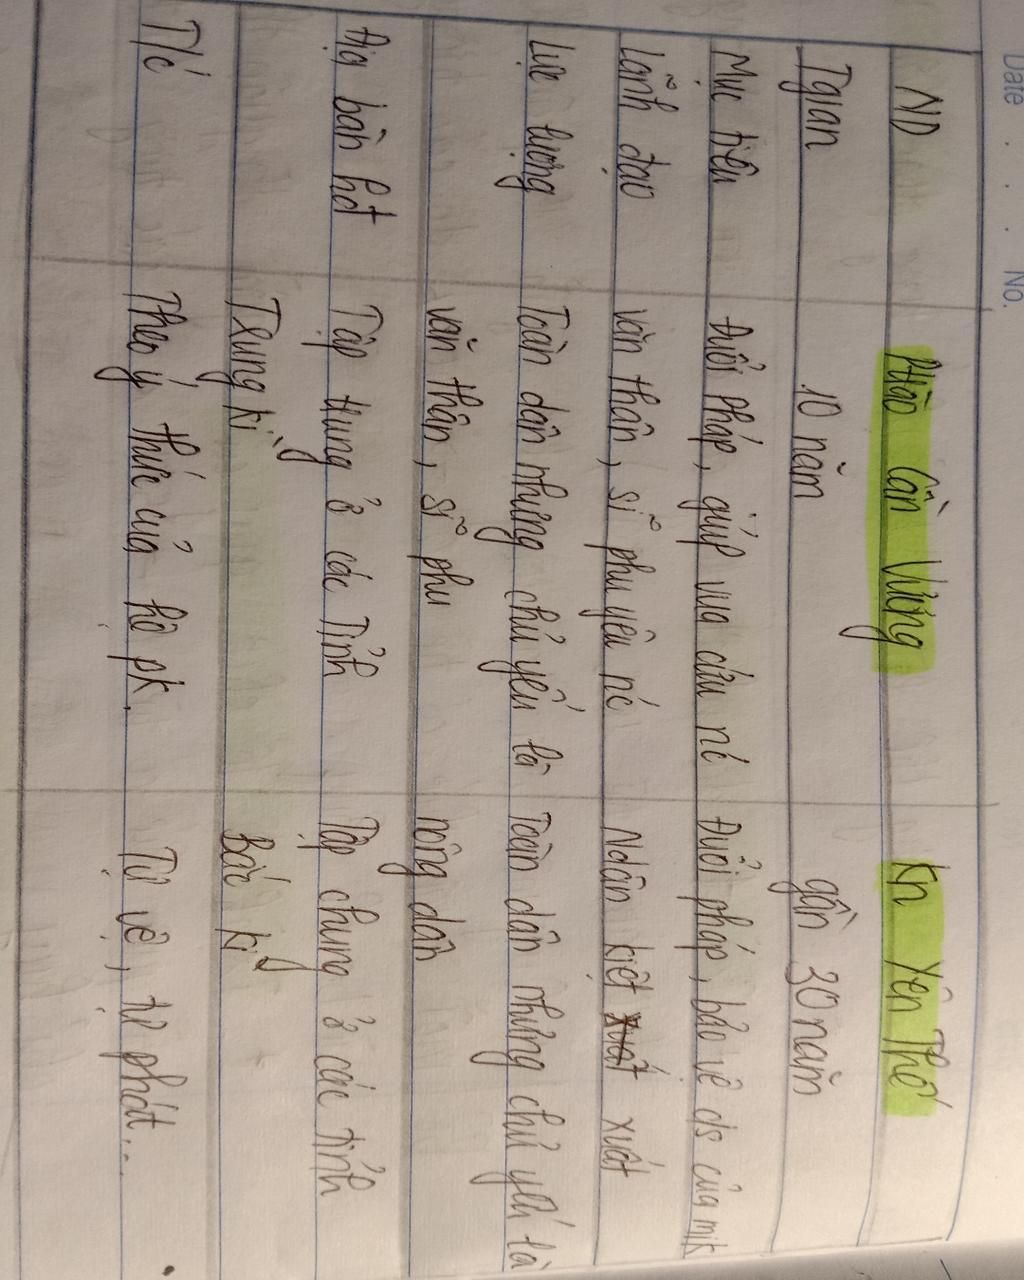 Date . . . No.
ND PTrào Cần Vương kn Yên Thế
Tgian 10 năm gần 30 năm
Mục tiêu Đuổi Pháp, giúp vua cứu nc Đuổi pháp, bảo vệ ds của mik
Lãnh đạo văn thân, sĩ phu yêu nc Ndân kiệt xuất
Lực lượng Toàn dân nhưng chủ yếu là Toàn dân nhưng chủ yếu là
văn thân, sĩ phu nông dân
Địa bàn hđ Tập trung ở các Tỉnh Tập chung ở các tỉnh
Trung kì Bắc kì
T/c Theo ý thức của hệ pk. Tự vệ, tự phát...